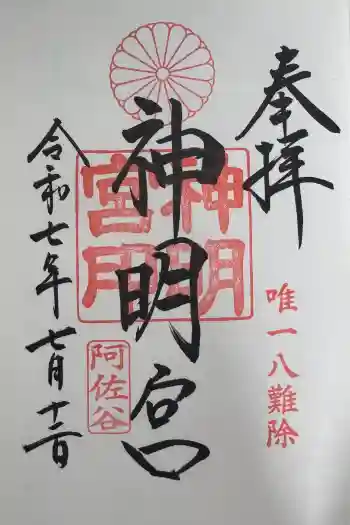 奉拝
唯一八難除
神明宮
神明
宮用
阿佐谷
令和七年七月十二日